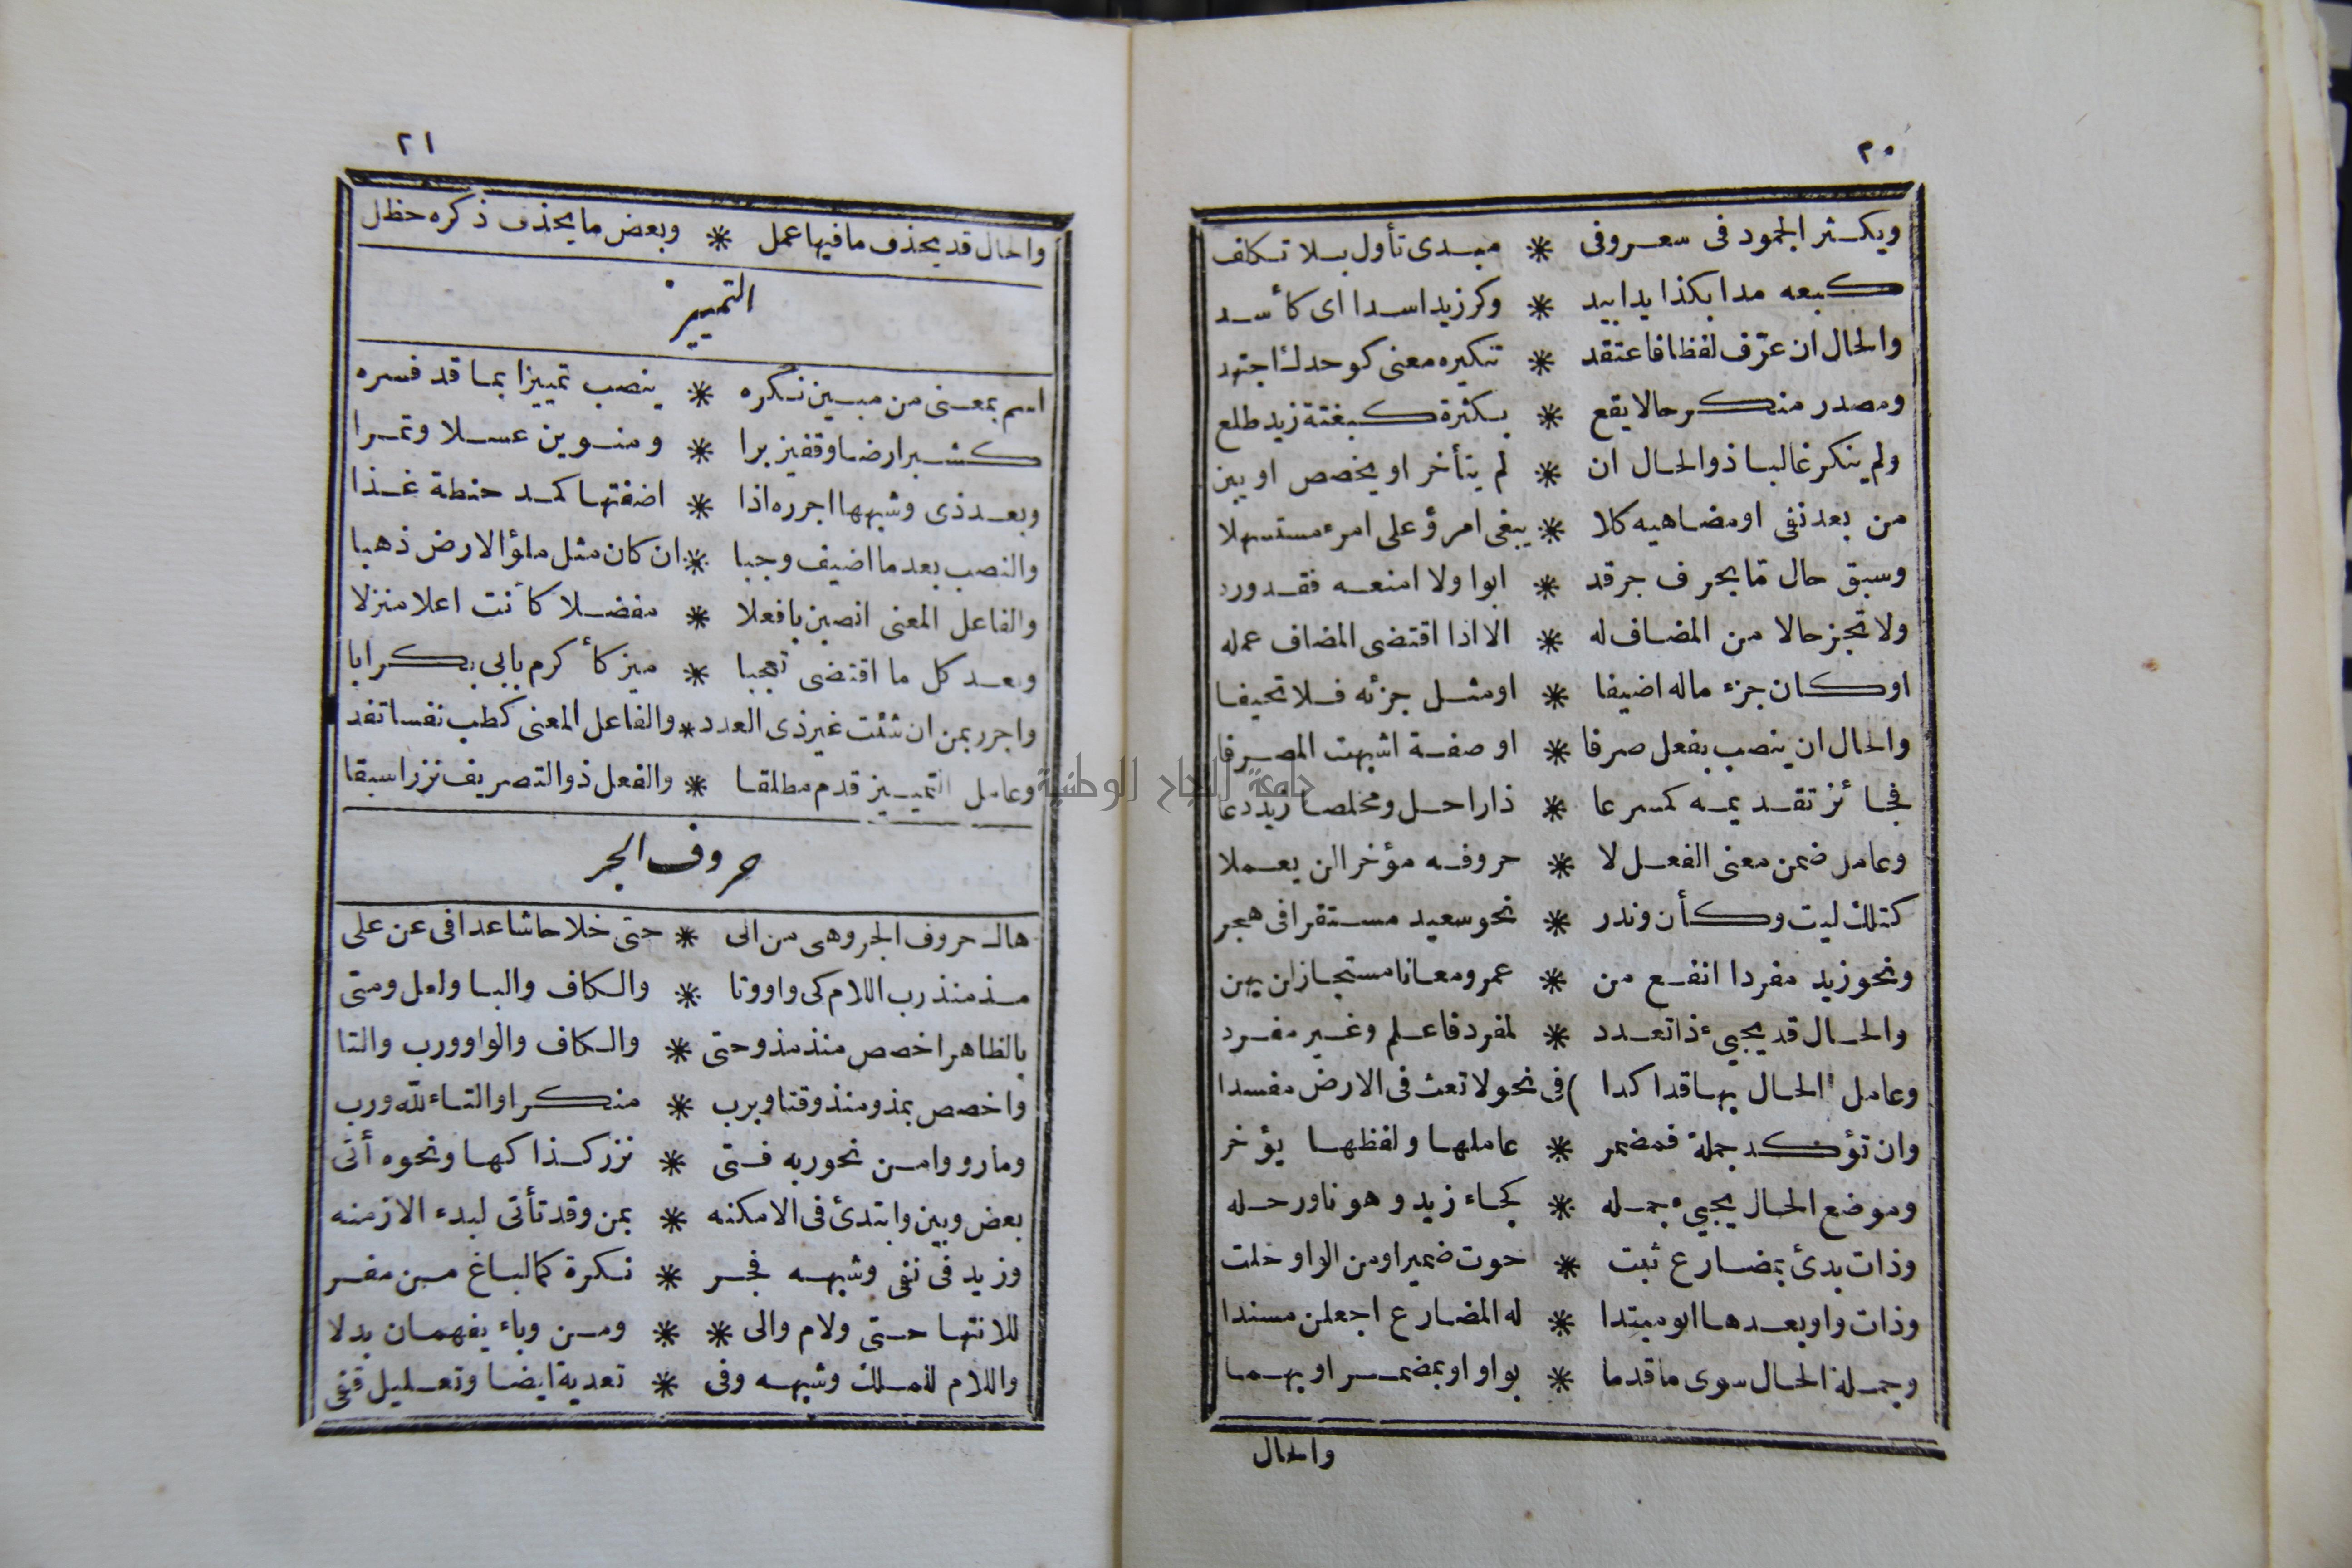 ٢٠
ويكثر الجمود فى سعروفى * مبدى تأول بلا تكلف
كبعه مدا بكذا يدا بيد * وكر زيد اسدا اى كأسد
والحال ان عرّف لفظا فاعتقد * تنكيره معنى كوحدك اجتهد
ومصدر منكر حالا يقع * بكثرة كبغتة زيد طلع
ولم ينكر غالبا ذو الحال ان * لم يتأخر او يخصص او يبن
من بعد نفى او مضاهيه كلا * يبغى امرؤ على امرء مستسهلا
وسبق حال ما بحرف جر قد * ابوا ولا امنعه فقد ورد
ولا تجز حالا من المضاف له * الا اذا اقتضى المضاف عمله
او كان جزء ماله اضيفا * او مثل جزئه فلا تحيفا
والحال ان ينصب بفعل صرفا * او صفة اشبهت المصرفا
فجائز تقديمه كمسرعا * ذا راحل ومخلصا زيد دعا
وعامل ضمن معنى الفعل لا * حروفه مؤخرا لن يعملا
كتلك ليت وكأن وندر * نحو سعيد مستقرا فى هجر
ونحو زيد مفردا انفع من * عمرو معانا مستجاز لن يهن
والحال قد يجيء ذا تعدد * لمفرد فاعلم وغير مفرد
وعامل الحال بها قد اكدا ) فى نحو لا تعث فى الارض مفسدا
وان تؤكد جملة فمضمر * عاملها ولفظها يؤخر
وموضع الحال يجيء جمله * كجاء زيد وهو ناو رحله
وذات بدئ بمضارع ثبت * حوت ضميرا ومن الواو خلت
وذات واو بعدها انو مبتدا * له المضارع اجعلن مسندا
وجملة الحال سوى ما قدما * بواو او بمضمر او بهما
والحال
٢١
والحال قد يحذف ما فيها عمل * وبعض ما يحذف ذكره حظل
التمييز
اسم بمعنى من مبين نكره * ينصب تمييزا بما قد فسره
كشبر ارضا وقفيز برا * ومنوين عسلا وتمرا
وبعد ذى وشبهها اجرره اذا * اضفتها كمد حنطة غذا
والنصب بعد ما اضيف وجبا * ان كان مثل ملؤ الارض ذهبا
والفاعل المعنى انصبن بافعلا * مفضلا كأنت اعلا منزلا
وبعد كل ما اقتضى تعجبا * ميز كأكرم بابى بكر ابا
واجرر بمن ان شئت غير ذى العدد * والفاعل المعنى كطب نفسا تفد
وعامل التمييز قدم مطلقا * والفعل ذو التصريف نزرا سبقا
حروف الجر
هاك حروف الجر وهى من الى * حتى خلا حاشا عدا فى عن على
مذ منذ رب اللام كى واو وتا * والكاف والبا ولعل ومتى
بالظاهر اخصص منذ مذ وحتى * والكاف والواو ورب والتا
واخصص بمذ ومنذ وقتا وبرب * منكرا والتاء لله ورب
وما رووا من نحو ربه فتى * نزر كذا كها ونحوه أتى
بعض وبين وابتدئ فى الامكنه * بمن وقد تأتى لبدء الازمنه
وزيد فى نفى وشبهه فجر * نكرة كما لباغ من مفر
للانتها حتى ولام والى * * ومن وباء يفهمان بدلا
واللام للملك وشبهه وفى * تعدية ايضا وتعليل قفى
جامعة النجاح الوطنية